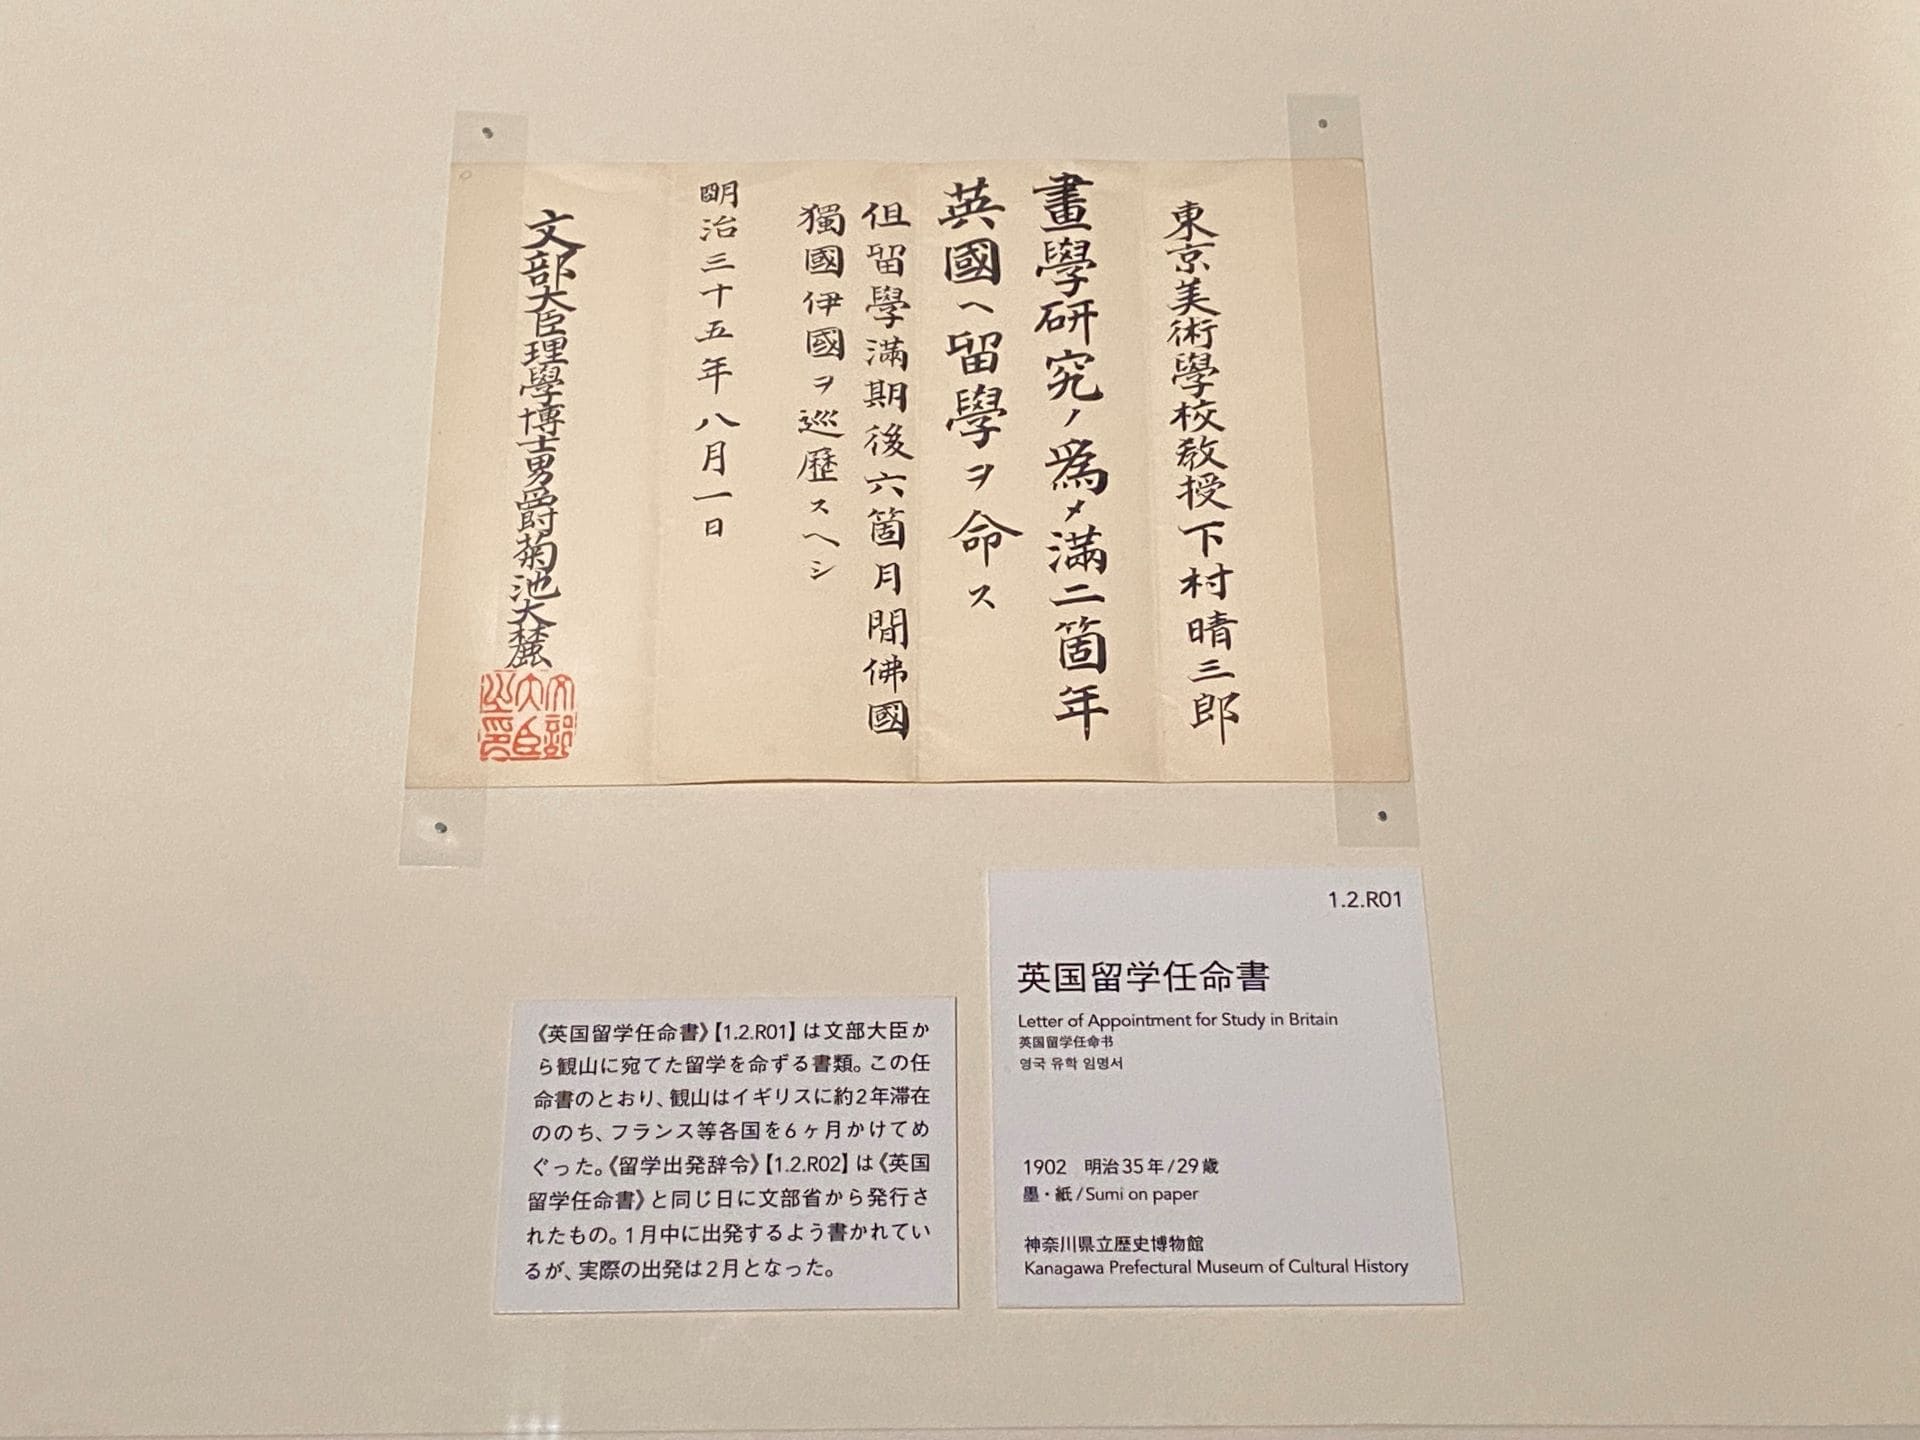 東京美術學校教授下村晴三郎
畫學研究ノ爲メ滿二箇年
英國ヘ留學ヲ命ス
但留學滿期後六箇月間佛國
獨國伊國ヲ巡歷スヘシ
明治三十五年八月一日
文部大臣理學博士男爵菊池大麓
文部
大臣
之印
《英国留学任命書》【1.2.R01】は文部大臣か
ら観山に宛てた留学を命ずる書類。この任
命書のとおり、観山はイギリスに約2年滞在
ののち、フランス等各国を6ヶ月かけてめ
ぐった。《留学出発辞令》【1.2.R02】は《英国
留学任命書》と同じ日に文部省から発行さ
れたもの。1月中に出発するよう書かれてい
るが、実際の出発は2月となった。
1.2.R01
英国留学任命書
Letter of Appointment for Study in Britain
英国留学任命书
영국 유학 임명서
1902 明治35年/29歳
墨・紙/Sumi on paper
神奈川県立歴史博物館
Kanagawa Prefectural Museum of Cultural History